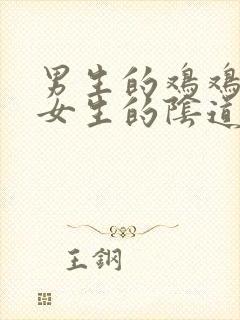 男生的鸡鸡
女生的陰道
王鋼